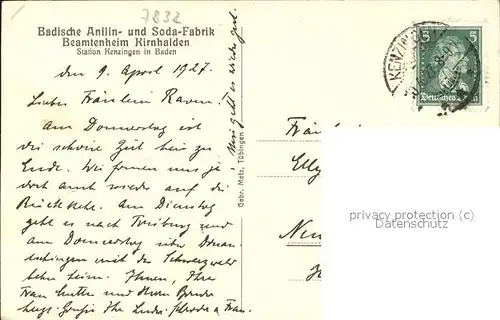 7832
Badische Anilin- und Soda-Fabrik
Beamtenheim Kirnhalden
Station Kenzingen in Baden
den 9. April 1927.
Liebes Fräulein Raven!
Am Donnerstag ist
die schöne Zeit hier zu
Ende. Wir freuen uns ja
doch auch wieder auf die
Rückkehr. Am Dienstag
geht es nach Triburg und
am Donnerstag über Donau-
eschingen mit der Schwarzwald
Ihnen, Ihrer
Frau Mutter und Ihrem Bruder
herzl. Grüße Ihr
Mir geht es wieder gut.
Gebr. Metz, Tübingen
KENZINGEN
5 5
Deutsches Reich
Fräu
Elly
Neu
privacy protection (c)
Datenschutz